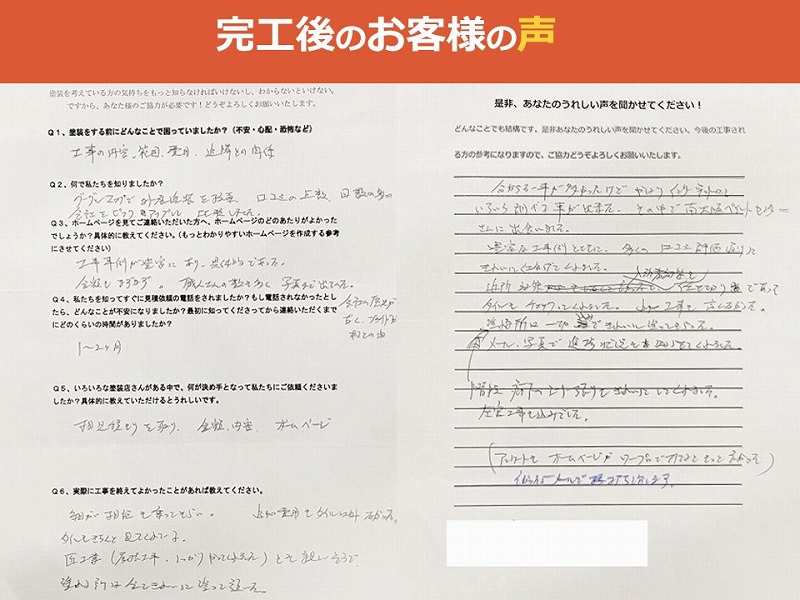 完工後のお客様の声
塗装を考えている方の気持ちをもっと知らなければいけないし、わからないといけない。
ですから、あなた様のご協力が必要です！どうぞよろしくお願いいたします。
Q１、塗装をする前にどんなことで困っていましたか？（不安・心配・恐怖など）
工事の内容、範囲、費用、近隣との関係
Q２、何で私たちを知りましたか？
グーグルマップで外壁塗装を検索、口コミの点数、回数の多い
会社をピックアップし比較しました。
Q３、ホームページを見てご連絡いただいた方へ、ホームページのどのあたりがよかった
でしょうか？具体的に教えてください。（もっとわかりやすいホームページを作成する参考
にさせてください）
工事事例が豊富にあり、具体的である。
金額もまずまず。職人さんの数も多く写真も出ている。
Q４、私たちを知ってすぐに見積依頼の電話をされましたか？もし電話されなかったとし
たら、どんなことが不安になりましたか？最初に知ってからご連絡いただくまで
にどのくらいの時間がありましたか？
会社の歴史が
古く、プライドが
1～2ヶ月
Q５、いろいろな塗装店さんがある中で、何が決め手となって私たちにご依頼くださいま
したか？具体的に教えていただけるとうれしいです。
相見積もりを取り、金額、内容、ホームページ
Q６、実際に工事を終えてよかったことがあれば教えてください。
細かい相談も乗ってもらい、
タイルもきちんと見てくれている。
塗れる所は全てきれいに塗って頂いた。
是非、あなたのうれしい声を聞かせてください！
どんなことでも結構です。是非あなたのうれしい声を聞かせてください。今後の工事され
る方の参考になりますので、ご協力どうぞよろしくお願いいたします。
分からない事が多かったけど やはりインターネットで
いろいろ調べる事が出来た。その中で南大阪ペイントセンター
さんに出会いました。
豊富な工事例とともに、多くの口コミ評価通りに
きれいに仕上げてくれました。
近所対策
タイルもチェックしてくれました。
塗る所は一切 できれいに塗ってもらった。
メール、写真で進捗状況も お知らせてくれました。
階段、廊下のシート張りもきれいにしてくれました。
左官工事も込みでした。
（アンケートも ホームページか ワープロで打てるともっとよかった）